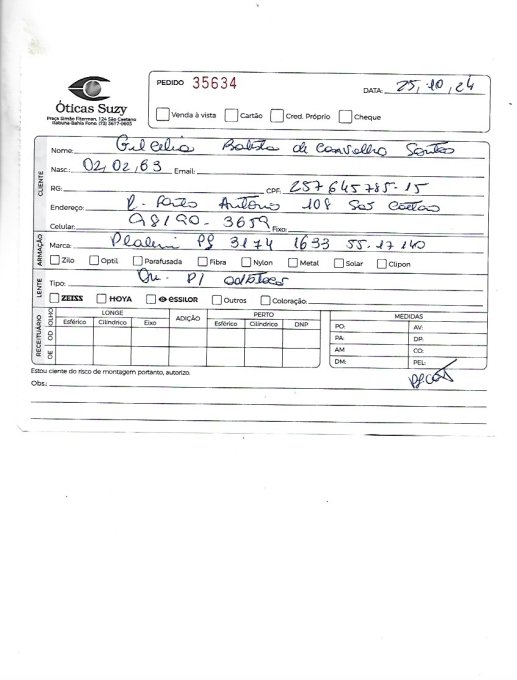 Óticas Suzy
Praça Simão Fiterman, 124 São Caetano
Itabuna-Bahia Fone: (73) 3617-0603
PEDIDO 35634
DATA: 25, 10, 24
Venda à vista Cartão Cred. Próprio Cheque
CLIENTE
Nome: Gilcelia Batista de Carvalho Santos
Nasc.: 02, 02, 63 Email:
RG: CPF: 257645785-15
Endereço: R. Antônio 108 São Caetano
Celular: 98190-3659 Fixo:
ARMAÇÃO
Marca: P8 3174 1633 55-17 140
Zilo Optil Parafusada Fibra Nylon Metal Solar Clipon
LENTE
Tipo: P/
ZEISS HOYA essilor Outros Coloração:
RECEITUÁRIO
OLHO LONGE ADIÇÃO PERTO MEDIDAS
Esférico Cilíndrico Eixo Esférico Cilíndrico DNP
OD
DE
PO: AV:
PA: DP:
AM CO:
DM: PEL:
Estou ciente do risco de montagem portanto, autorizo.
Obs.: